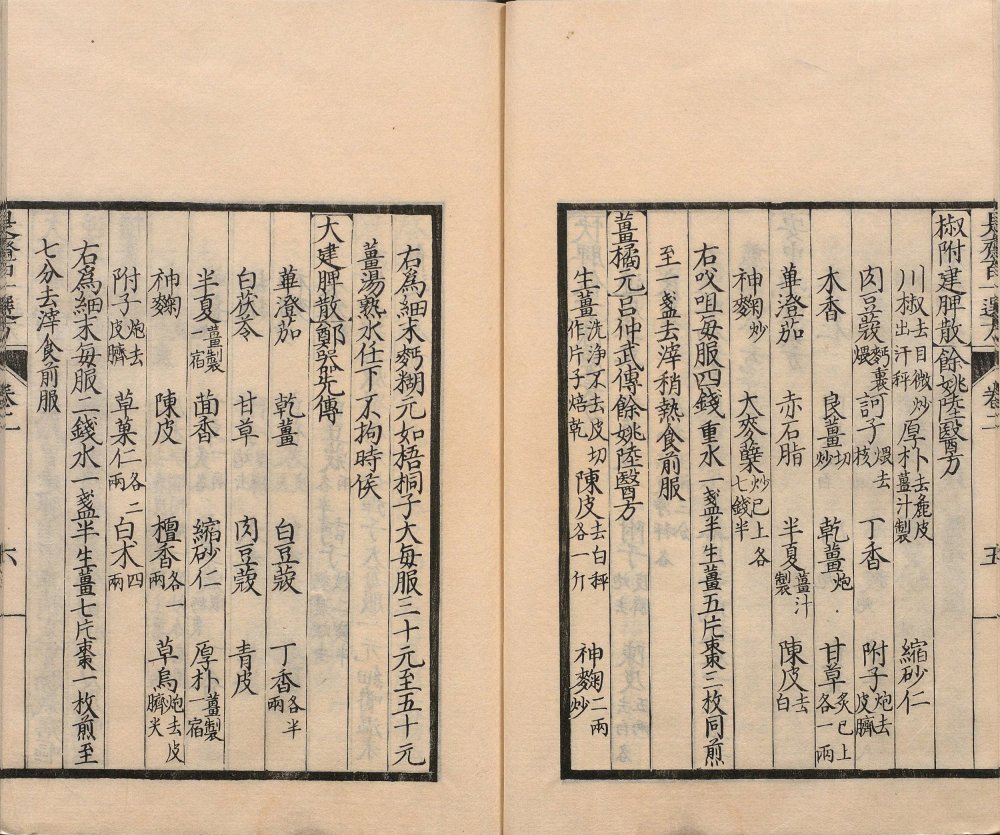 椒附建脾散 餘姚陸醫方
川椒去目微炒出汗秤 厚朴去麁皮薑汁製 縮砂仁
肉豆蔻麪裹煨 訶子煨去核 丁香 附子炮去皮臍
木香 良薑切炒 乾薑炮 甘草炙已上各一兩
蓽澄茄 赤石脂 半夏薑汁製 陳皮去白
神麴炒 大麥蘖炒已上各七錢半
右㕮咀每服四錢重水一盞半生薑五片棗二枚同煎
至一盞去滓稍熱食前服
薑橘元 呂仲武傳餘姚陸醫方
生薑洗淨不去皮切作片子焙乾 陳皮去白秤各一斤 神麴二兩炒
右爲細末麪糊元如梧桐子大每服三十元至五十元
薑湯熟水任下不拘時候
大建脾散 鄭器先傳
蓽澄茄 乾薑 白豆蔻 丁香各半兩
白茯苓 甘草 肉豆蔻 青皮
半夏薑製一宿 茴香 縮砂仁 厚朴薑製一宿
神麴 陳皮 檀香各一兩 草烏炮去皮臍尖
附子炮去皮臍 草菓仁各二兩 白朮四兩
右爲細末每服二錢水一盞半生薑七片棗一枚煎至
七分去滓食前服
六